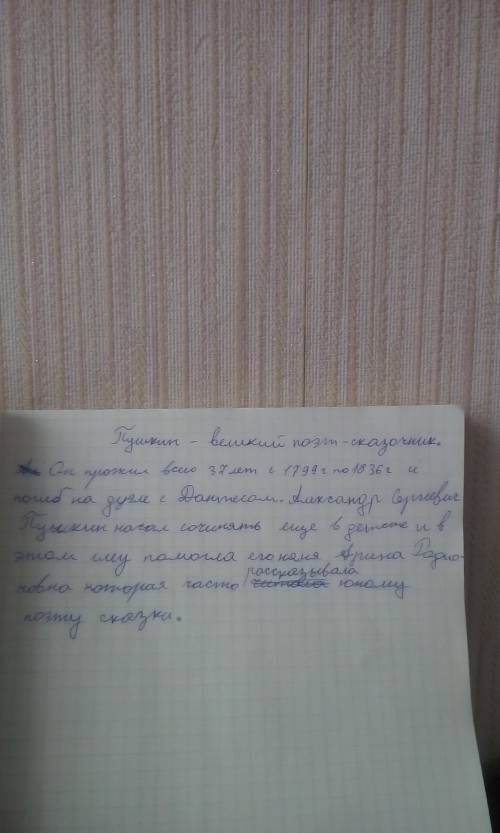 Пушкин - великий поэт-сказочник.
Он прожил всего 37 лет с 1799г по 1836г и
погиб на дуэле с Дантесом. Александр Сергеевич
Пушкин начал сочинять еще в детстве и в
этом ему помогла его няня Арина Родио-
новна которая часто рассказывала юному
поэту сказки.